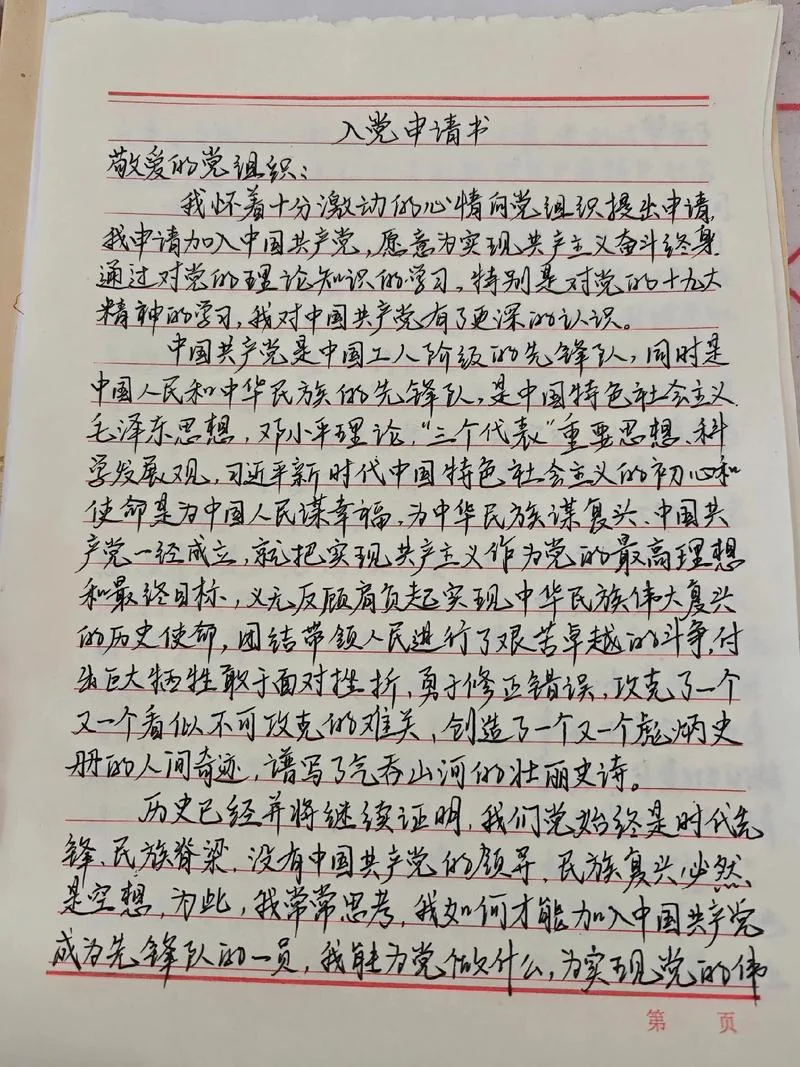 入党申请书
敬爱的党组织：
我怀着十分激动的心情向党组织提出申请，
我申请加入中国共产党，愿意为实现共产主义奋斗终身
通过对党的理论知识的学习，特别是对党的十九大
精神的学习，我对中国共产党有了更深的认识。
中国共产党是中国工人阶级的先锋队，同时是
中国人民和中华民族的先锋队，是中国特色社会主义、
毛泽东思想，邓小平理论，“三个代表”重要思想、科
学发展观，习近平新时代中国特色社会主义的初心和
使命是为中国人民谋幸福，为中华民族谋复兴、中国共
产党一经成立，就把实现共产主义作为党的最高理想
和最终目标，义无反顾肩负起实现中华民族伟大复兴
的历史使命，团结带领人民进行了艰苦卓越的斗争，付
出巨大牺牲敢于面对挫折，勇于修正错误，攻克了一个
又一个看似不可攻克的难关，创造了一个又一个彪炳史
册的人间奇迹，谱写了气吞山河的壮丽史诗。
历史已经并将继续证明，我们党始终是时代先
锋、民族脊梁，没有中国共产党的领导，民族复兴必然
是空想，为此，我常常思考，我如何才能加入中国共产党
成为先锋队的一员，我能为党做什么，为实现党的伟
第 页